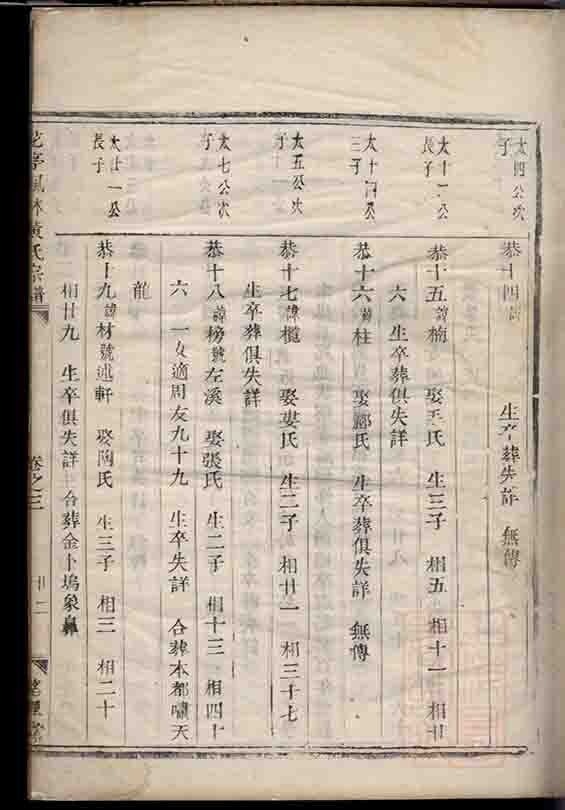 太四公次子
恭十四諱 生卒葬失詳 無傳
太十一公長子
恭十五諱楠 娶王氏 生三子 相五 相十一 相廿
六 生卒葬俱失詳
太十四公三子
恭十六諱柱 娶酈氏 生卒葬俱失詳 無傳
太五公次子
恭十七諱欖 娶婁氏 生二子 相廿一 相三十七
生卒葬俱失詳
太七公次子
恭十八諱榜號左溪 娶張氏 生二子 相十三 相四十
六 一女適周友九十九 生卒失詳 合葬本都嘯天
龍
太廿一公長子
恭十九諱材號述軒 娶陶氏 生三子 相三 相二十
相廿九 生卒俱失詳 合葬金卜塢象鼻
黃氏宗譜 卷之三 廿二